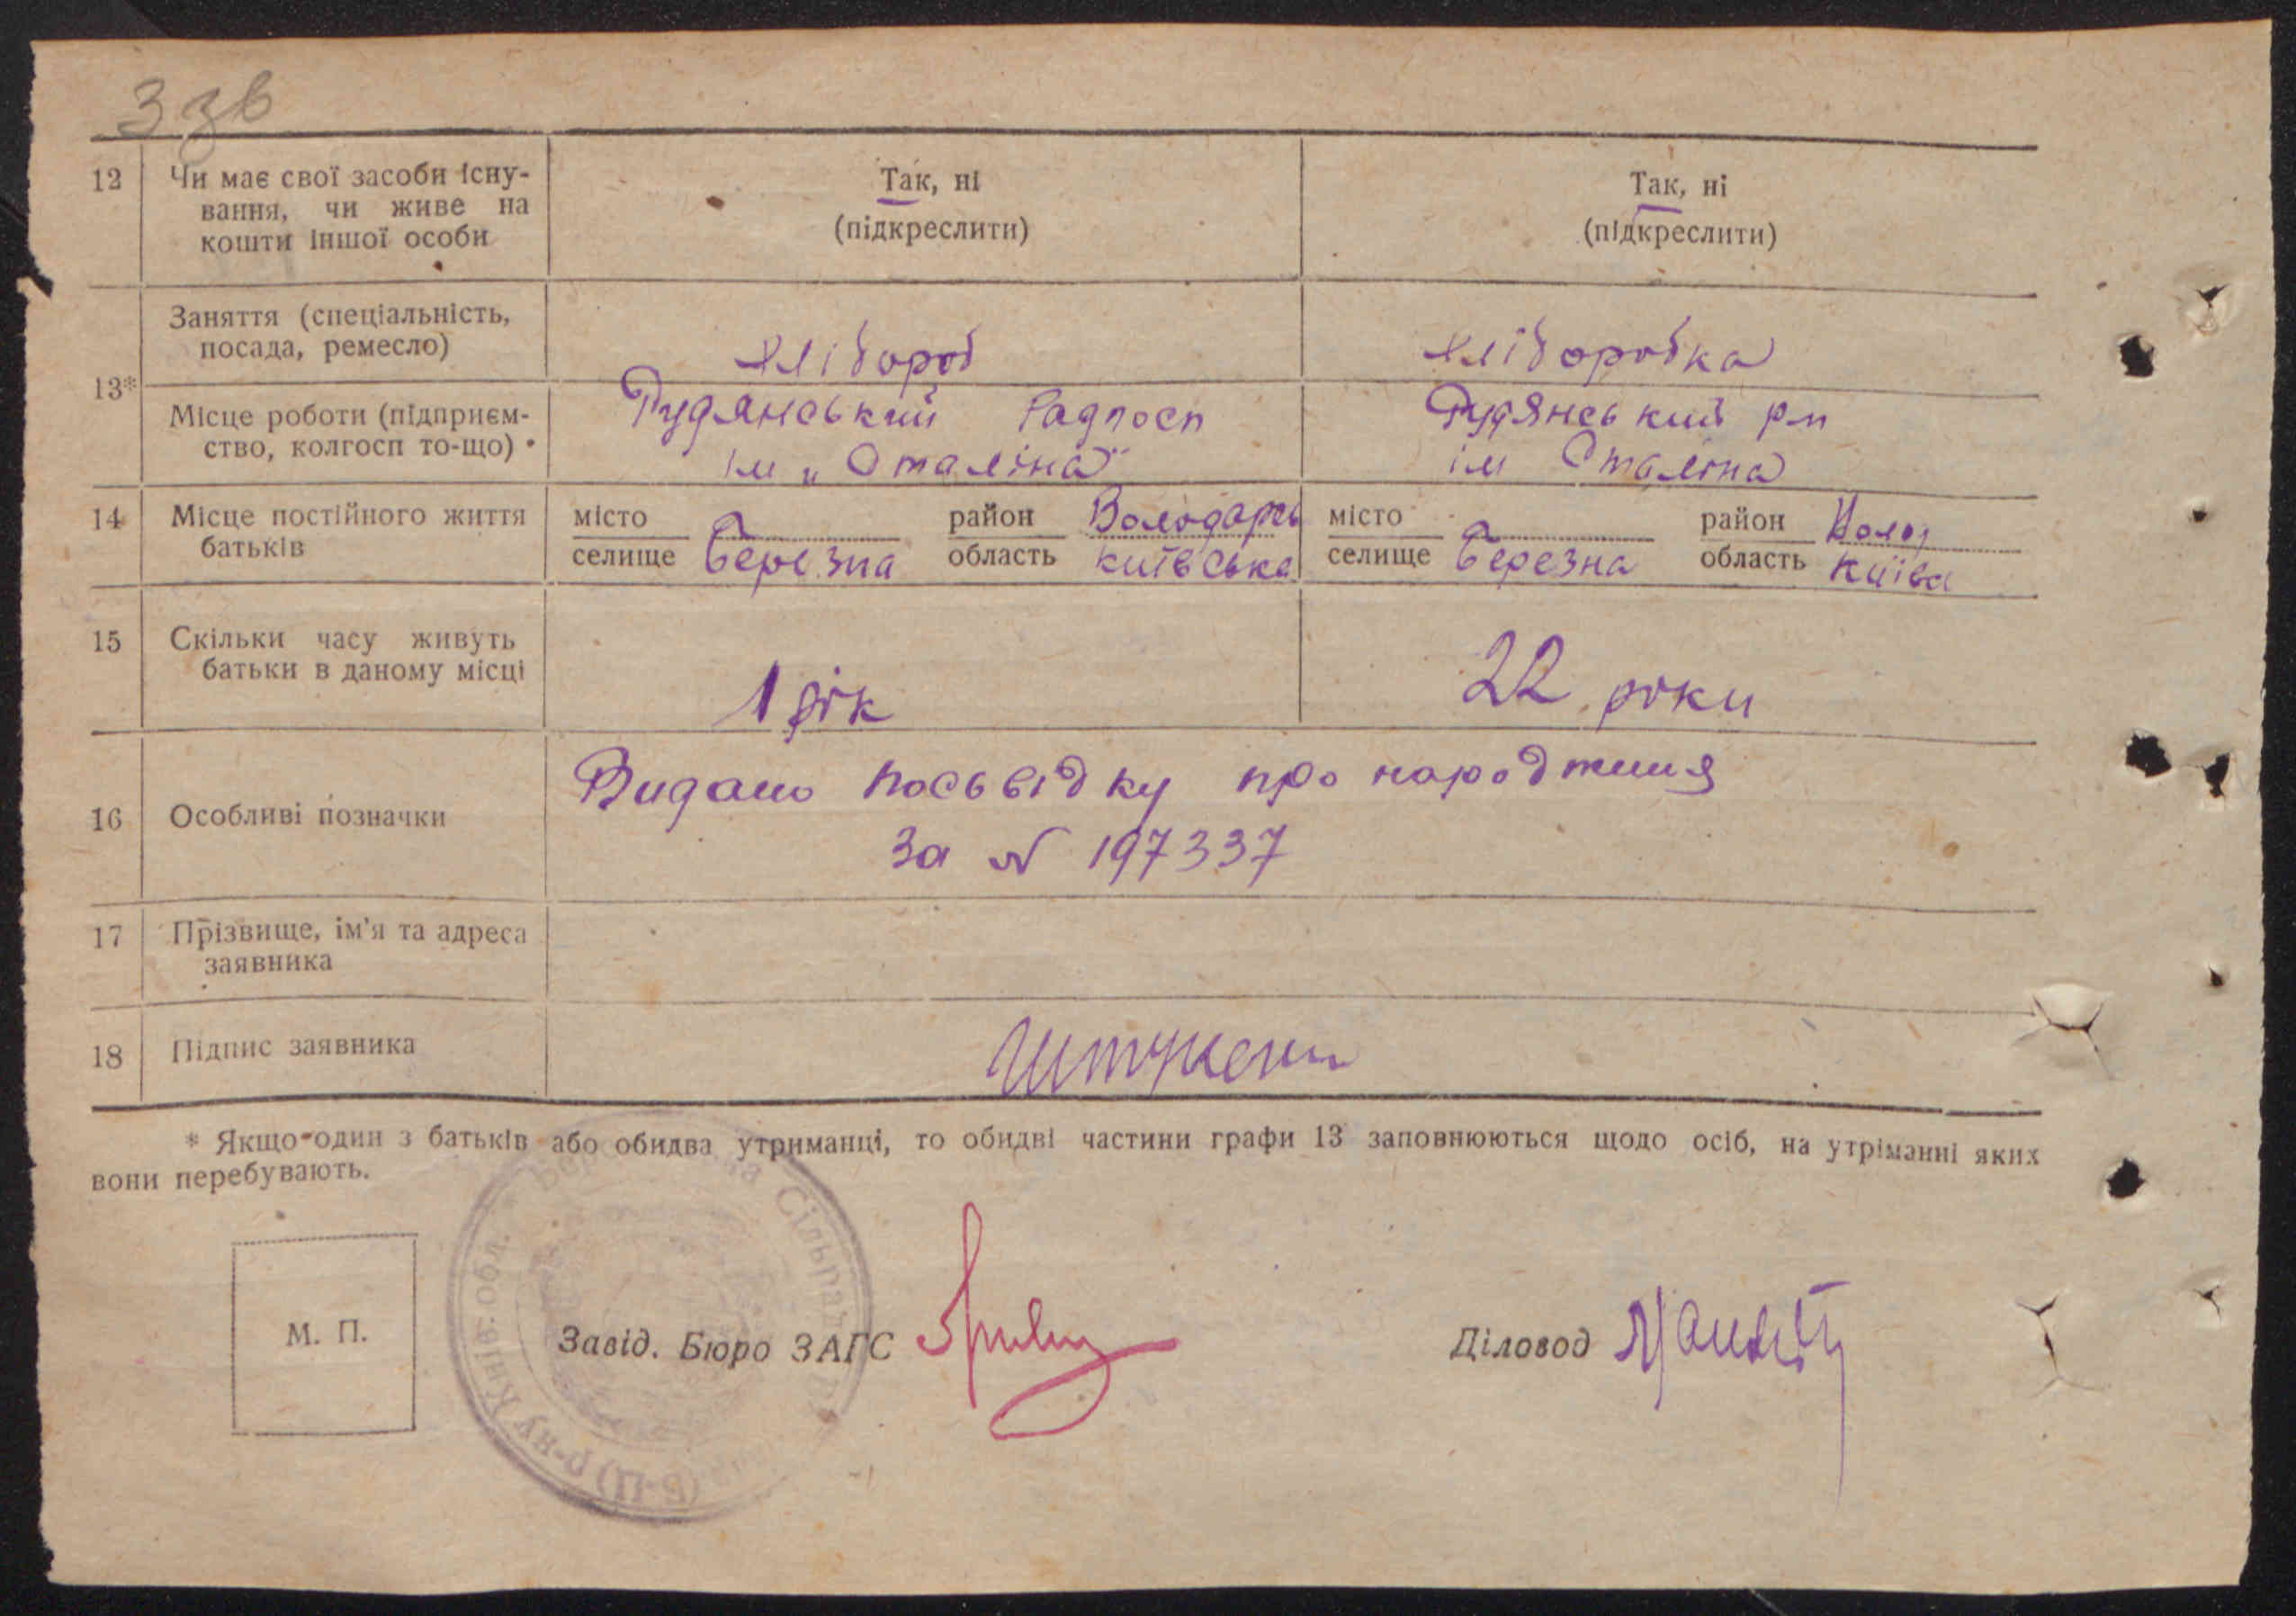 3 зв
12 Чи має свої засоби існу- Так, ні Так, ні
вання, чи живе на (підкреслити) (підкреслити)
кошти іншої особи
13* Заняття (спеціальність,
посада, ремесло) хлібороб хліборобка
Місце роботи (підприєм- Рудянський Радгосп Рудянський рп
ство, колгосп то-що) ім „Сталіна" ім Сталіна
14 Місце постійного життя місто район Володарсь місто район Волод
батьків селище Березна область київська селище Березна область Київа
15 Скільки часу живуть
батьки в даному місці 1 рік 22 роки
16 Особливі позначки Видано посьвідку про народження
за № 197337
17 Прізвище, ім'я та адреса
заявника
18 Підпис заявника
* Якщо один з батьків або обидва утриманці, то обидві частини графи 13 заповнюються щодо осіб, на утріманні яких
вони перебувають.
М. П. Завід. Бюро ЗАГС Діловод
Сільрада
(Б-Ц) р-ну Київ. обл.